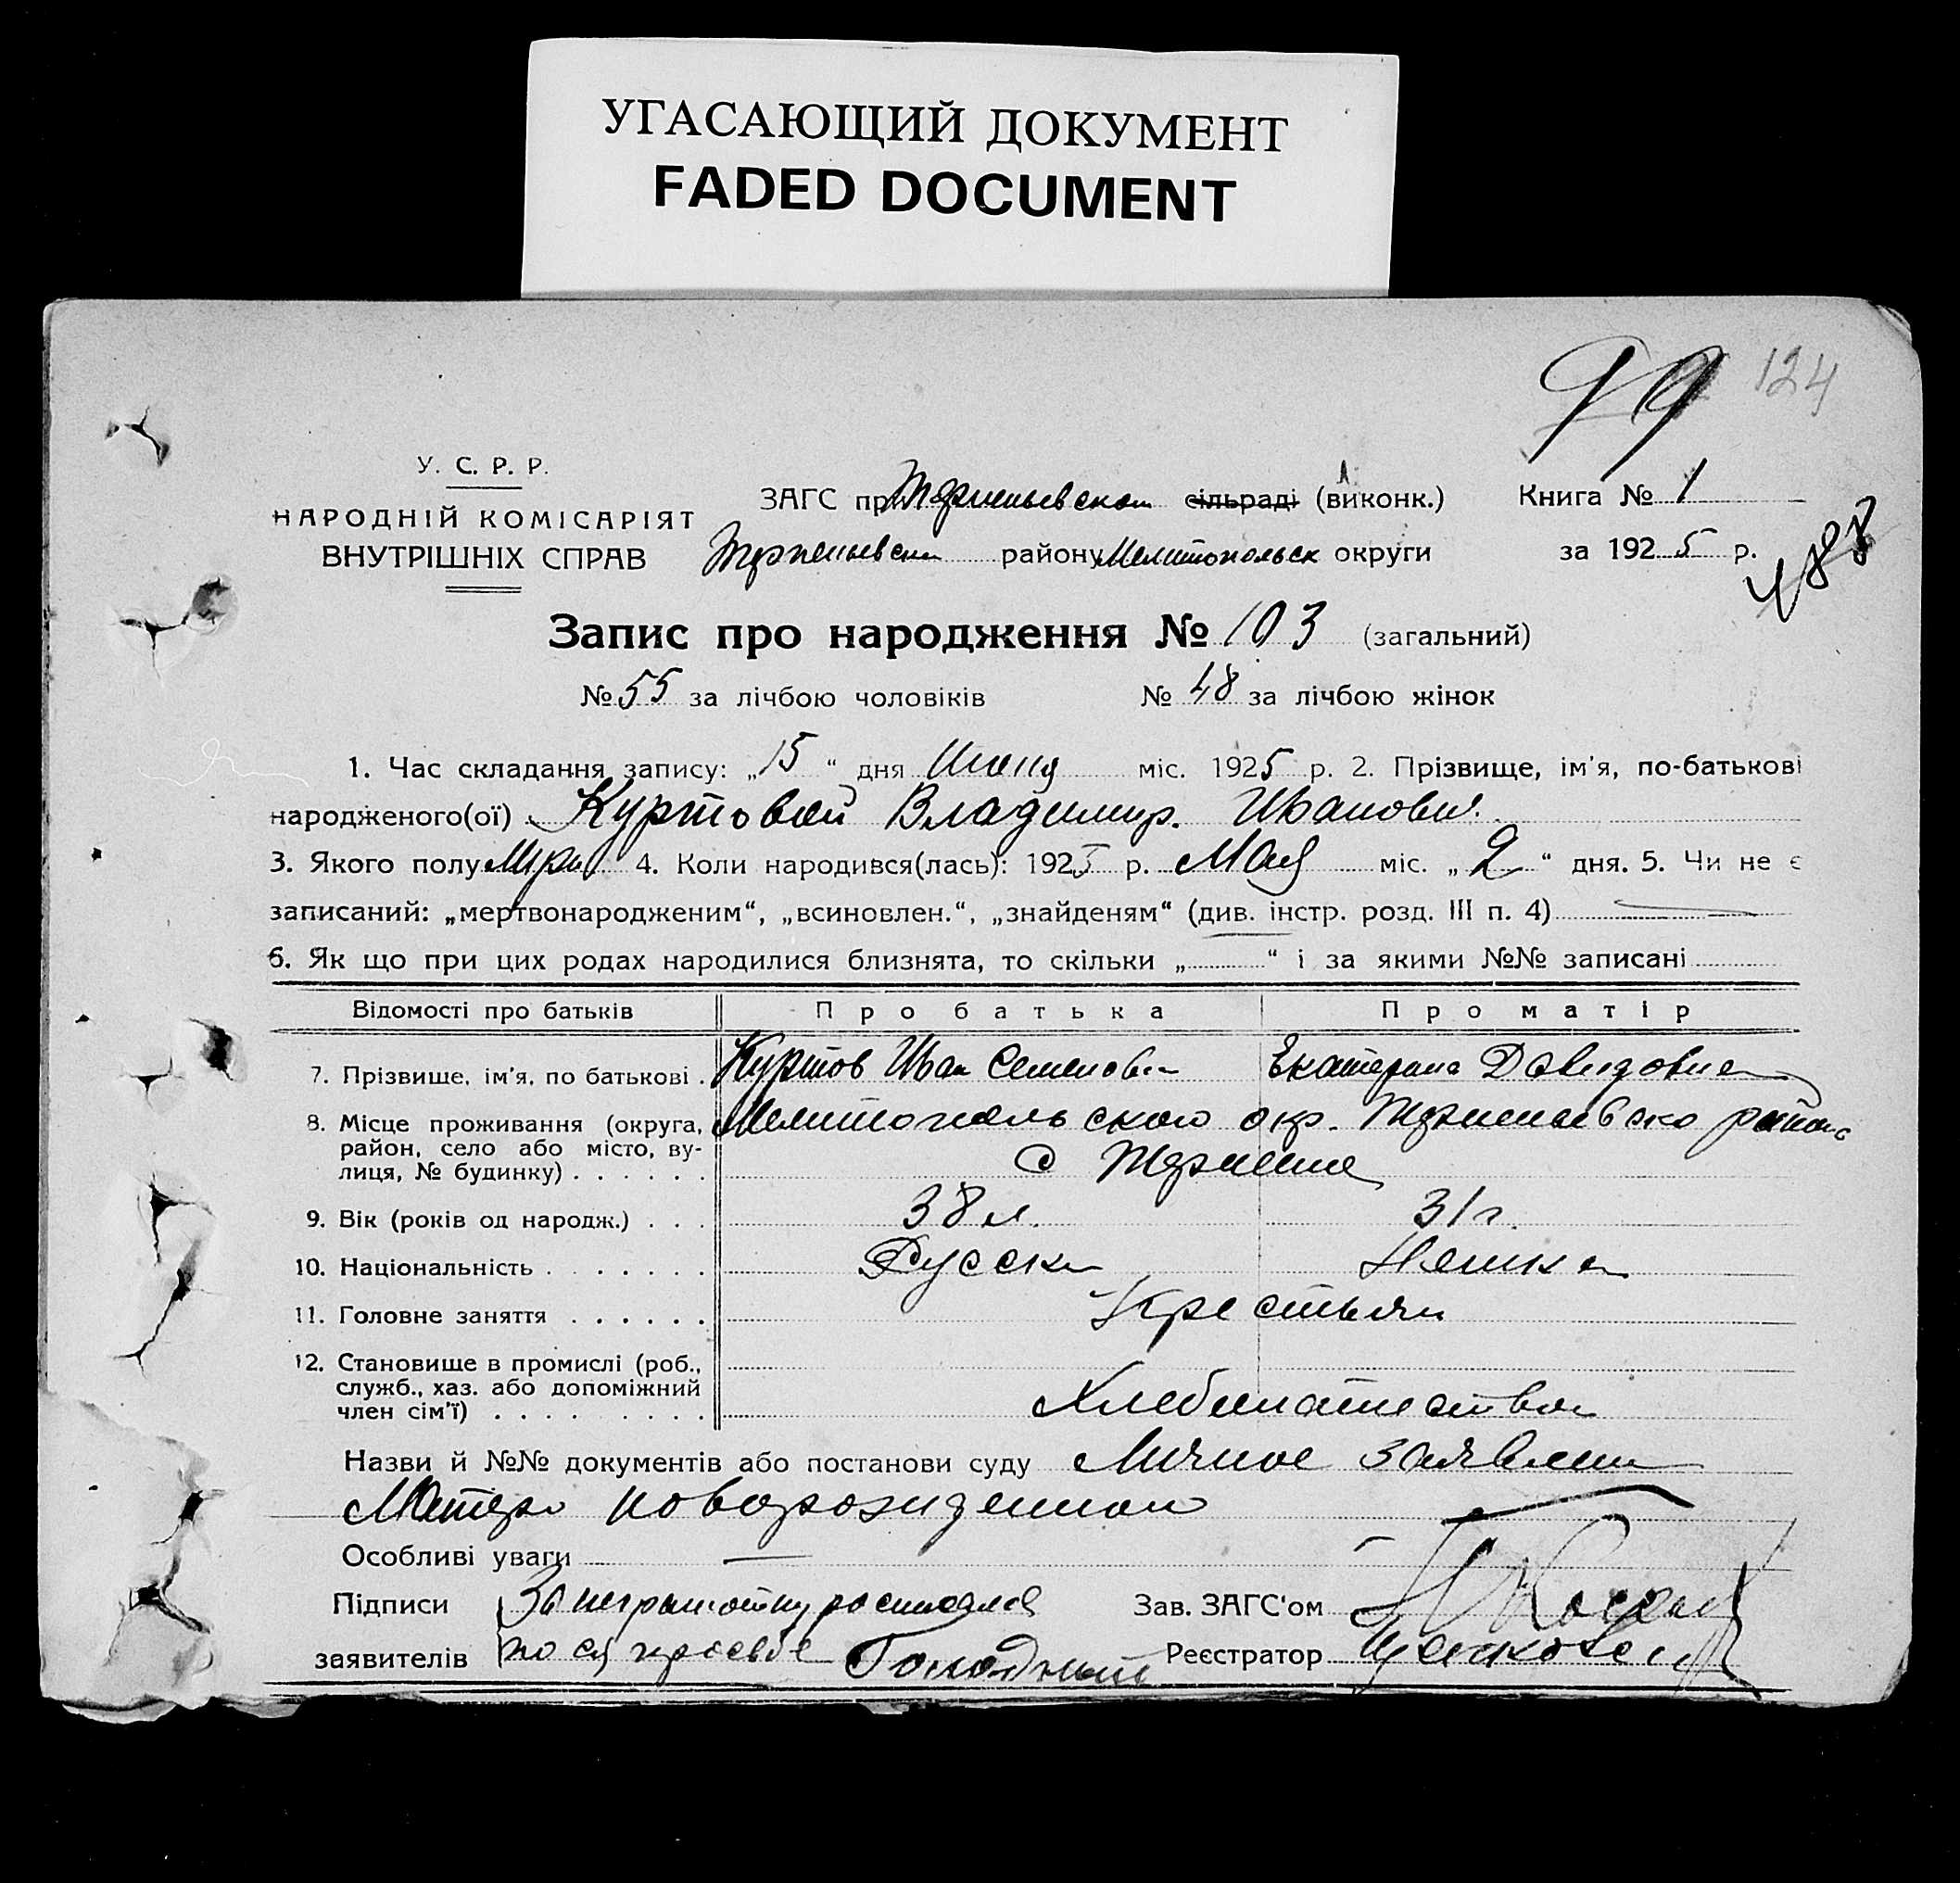 УГАСАЮЩИЙ ДОКУМЕНТ
FADED DOCUMENT
99 124
У. С. Р. Р.
НАРОДНІЙ КОМІСАРІЯТ
ВНУТРІШНІХ СПРАВ
ЗАГС при Терпеньевском сільраді (виконк.) Книга № 1
Терпеньевском району Мелитопольск округи за 1925 р.
Запис про народження № 103 (загальний)
№ 55 за лічбою чоловіків № 48 за лічбою жінок
1. Час складання запису: „15“ дня Июня міс. 1925 р. 2. Прізвище, ім'я, по-батькові
народженого(ої) Куртовой Владимир. Иванович.
3. Якого полу 4. Коли народився(лась): 1925 р. Мая міс. „2“ дня. 5. Чи не є
записаний: „мертвонародженим“, „всиновлен.“, „знайденям“ (див. інстр. розд. III п. 4)
6. Як що при цих родах народилися близнята, то скільки „ “ і за якими №№ записані
Відомості про батьків Про батька Про матір
7. Прізвище, ім'я, по батькові . Куртов Иван Семенович Екатерина Давидовна
8. Місце проживання (округа, Мелитопольского окр. Терпеньевско района
район, село або місто, ву-
лиця, № будинку) . . . . . . с Терпение
9. Вік (років од народж.) . . . 38 л. 31 г.
10. Національність . . . . . . . Русски Немка
11. Головне заняття . . . . . . Крестьян
12. Становище в промислі (роб.,
служб., хаз. або допоміжний
член сім'ї) . . . . . . . . . Хлебопашество
Назви й №№ документів або постанови суду Личное заявлени
Матери новорожденном
Особливі уваги —
Підписи За неграмотну росписался Зав. ЗАГС'ом
заявителів по ея просьбе Голодный Реєстратор